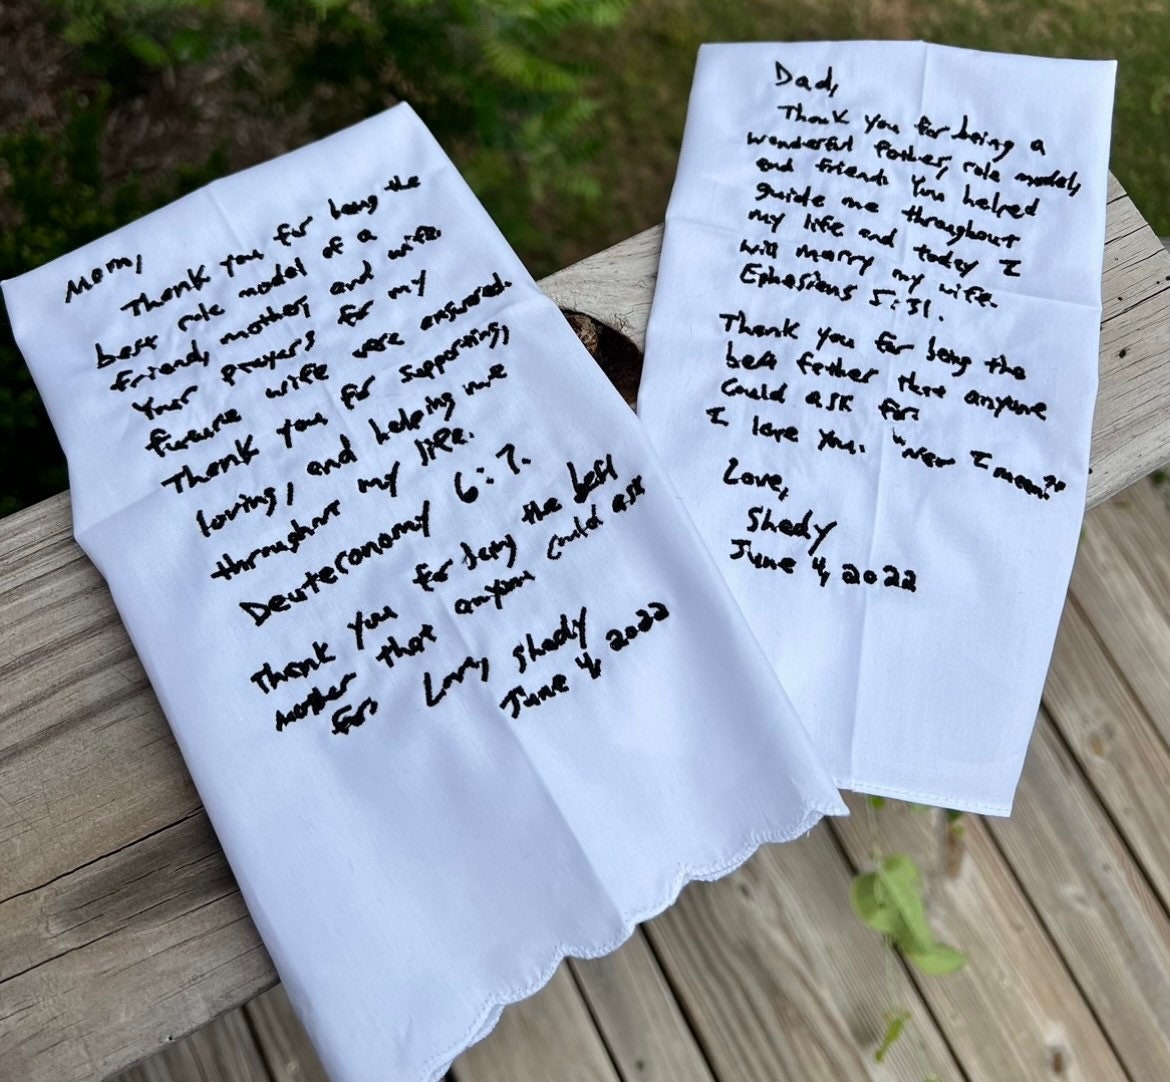 Mom,
Thank you for being the
best role model of a
friend, mother, and wife.
Your prayers for my
future wife were answered.
Thank you for supporting,
loving, and helping me
throughout my life.
Deuteronomy 6:7.
Thank you for being the best
mother that anyone could ask
for. Love, Shady
June 4, 2022
Dad,
Thank you for being a
wonderful father, role model,
and friend. You helped
guide me throughout
my life and today I
will marry my wife.
Ephesians 5:31.
Thank you for being the
best father that anyone
could ask for.
I love you. "Now I mean?"
Love,
Shady
June 4, 2022